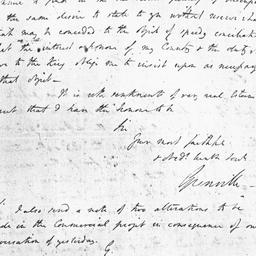 the same desire to state to you without reserve
may be conceded to the object of speedy
the interest & honour of my Country & the duty
to the King oblige me to insist upon as necessary
that object.
It is with sentiments of very real Esteem
that I have the honour to be
Sir
Your most faithful
& Obedt humble Servt
Grenville
I also send a note of two alterations to be
in the Commercial project in consequence of our
of yesterday.
G